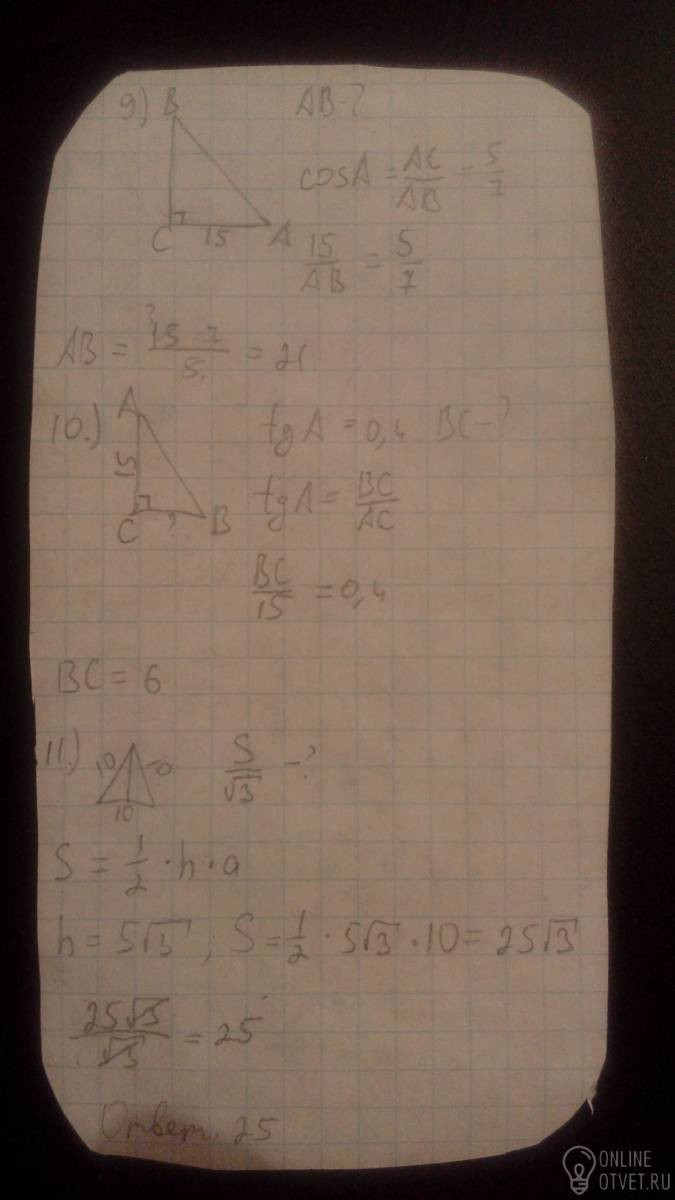 9) B AB-?
cosA = AC/AB = 5/7
C 15 A
15/AB = 5/7
AB = 15 7/5 = 21
10.) A tgA = 0,4 BC-?
15
tgA = BC/AC
C ? B
BC/15 = 0,4
BC = 6
11.) 10 10 S/√3 -?
10
S = 1/2 · h · a
h = 5√3 ; S = 1/2 · 5√3 · 10 = 25√3
25√3/√3 = 25
Ответ. 25
ONLINE
OTVET.RU